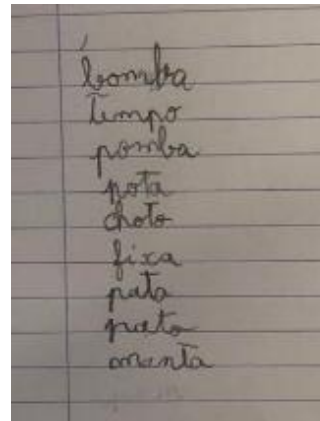 bomba
tempo
pomba
pota
choto
fixa
pata
preto
manta